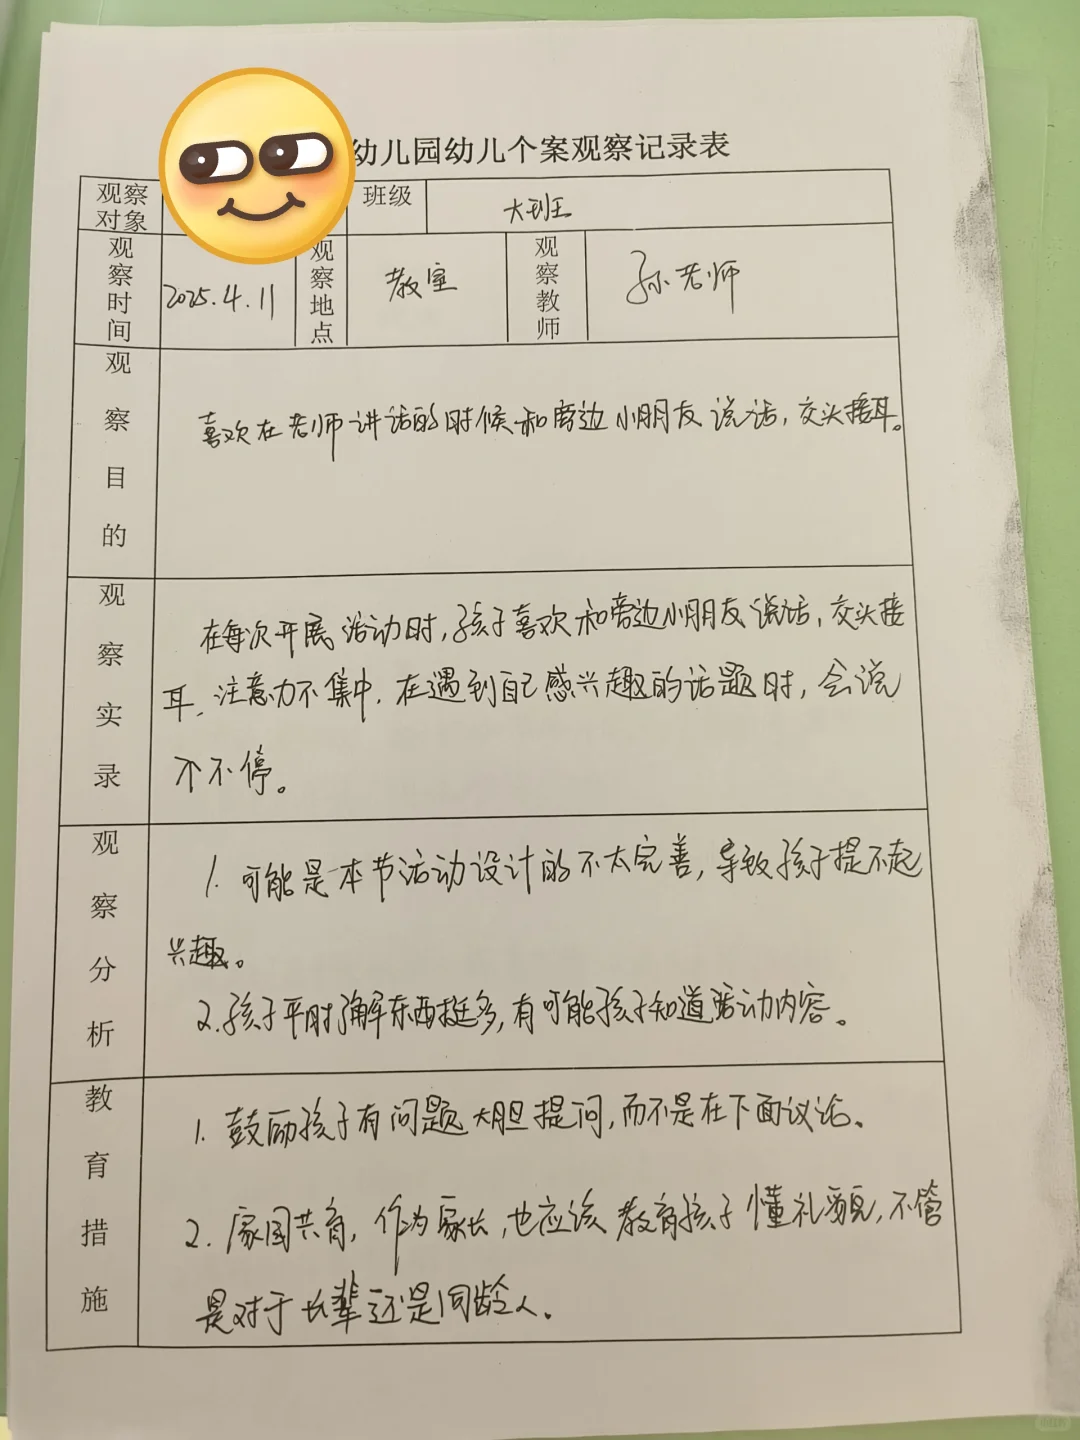 幼儿园幼儿个案观察记录表
观察对象 班级 大班
观察时间 2025.4.11 观察地点 教室 观察教师 孙老师
观察目的
喜欢在老师讲话的时候和旁边小朋友说话，交头接耳。
观察实录
在每次开展活动时，孩子喜欢和旁边小朋友说话，交头接
耳，注意力不集中，在遇到自己感兴趣的话题时，会说
个不停。
观察分析
1. 可能是本节活动设计的不太完善，导致孩子提不起
兴趣。
2. 孩子平时了解东西挺多，有可能孩子知道活动内容。
教育措施
1. 鼓励孩子有问题大胆提问，而不是在下面议论。
2. 家园共育，作为家长，也应该教育孩子懂礼貌，不管
是对于长辈还是同龄人。